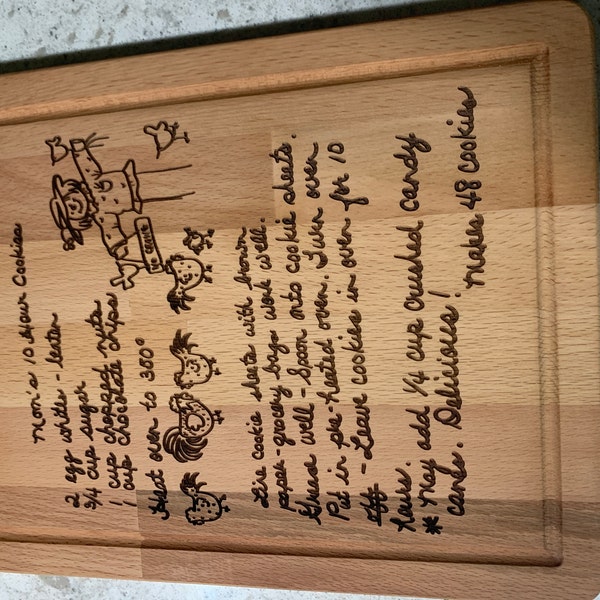 Mom's 10 Hour Cookies
2 egg whites - beaten
3/4 cup sugar
1 cup chopped nuts
1 cup chocolate chips
Heat oven to 350°
Line cookie sheets with brown
paper - grocery bags work well.
Grease well - Spoon onto cookie sheets.
Put in pre-heated oven. Turn oven
off - Leave cookies in oven for 10
hours.
* May add 1/4 cup crushed candy
canes. Delicious! Makes 48 cookies